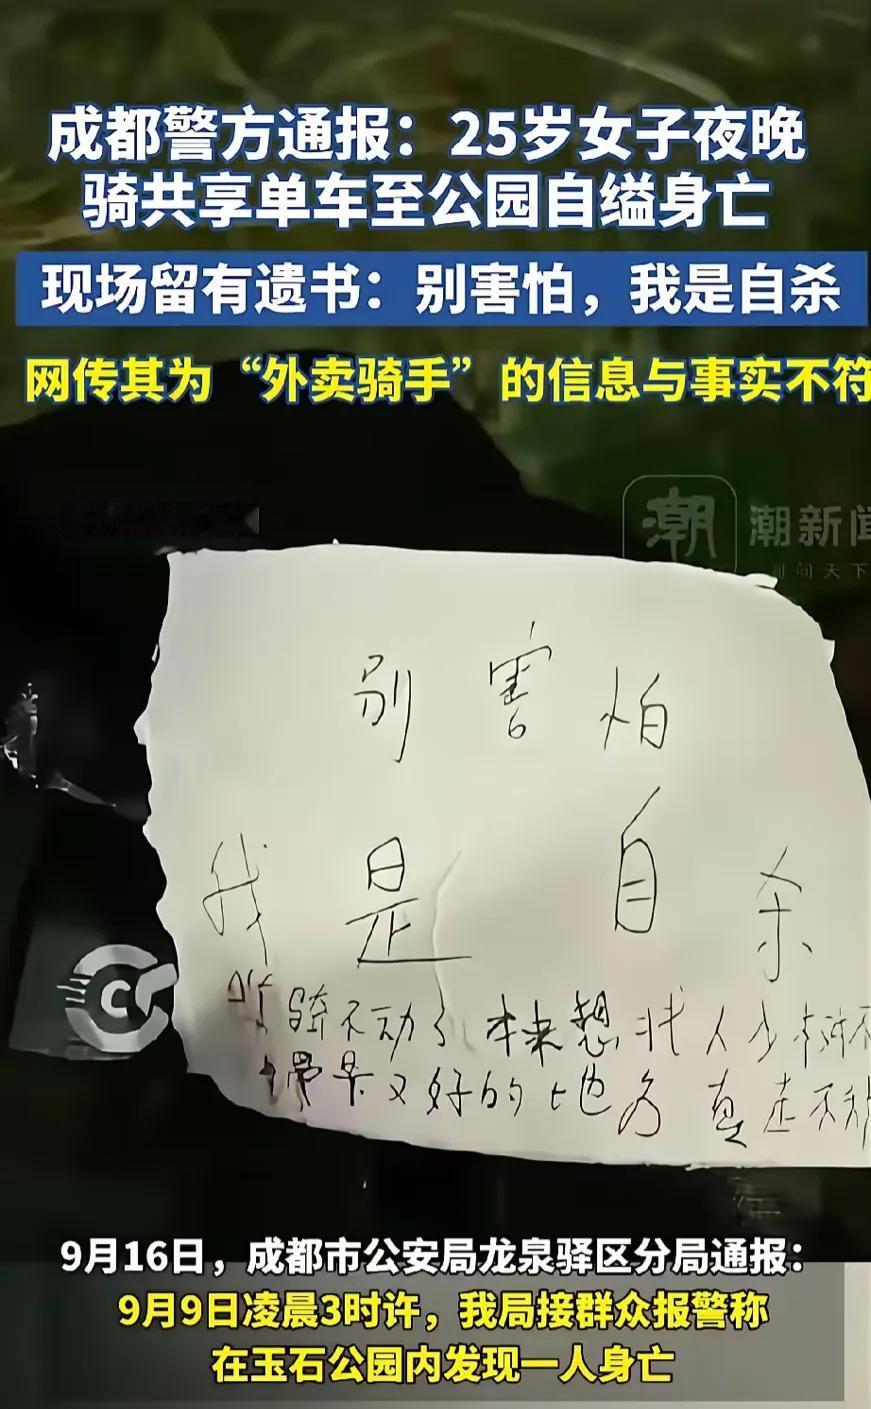 成都警方通报：25岁女子夜晚
骑共享单车至公园自缢身亡
现场留有遗书：别害怕，我是自杀
网传其为“外卖骑手”的信息与事实不符
潮 潮新闻
别害怕
我是自杀
骑不动了 本来想找人少
又好的地方 真走不动
9月16日，成都市公安局龙泉驿区分局通报：
9月9日凌晨3时许，我局接群众报警称
在玉石公园内发现一人身亡